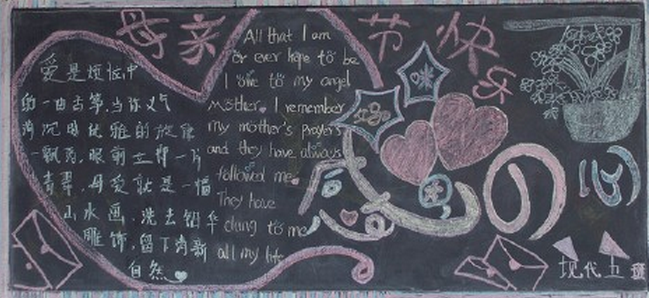 母亲节快乐
爱是烦恼中
的一曲古筝,当你义气
消沉时优雅的旋律
一飘荡,眼前立即一片
青翠,母爱就是一幅
山水画,洗去铅华
雕饰,留下清新
自然
All that I am
or ever hope to be
I owe to my angel
Mother. I remember
my mother's prayers
and they have always
followed me.
They have
clung to me
all my life
感恩の心
现代五班